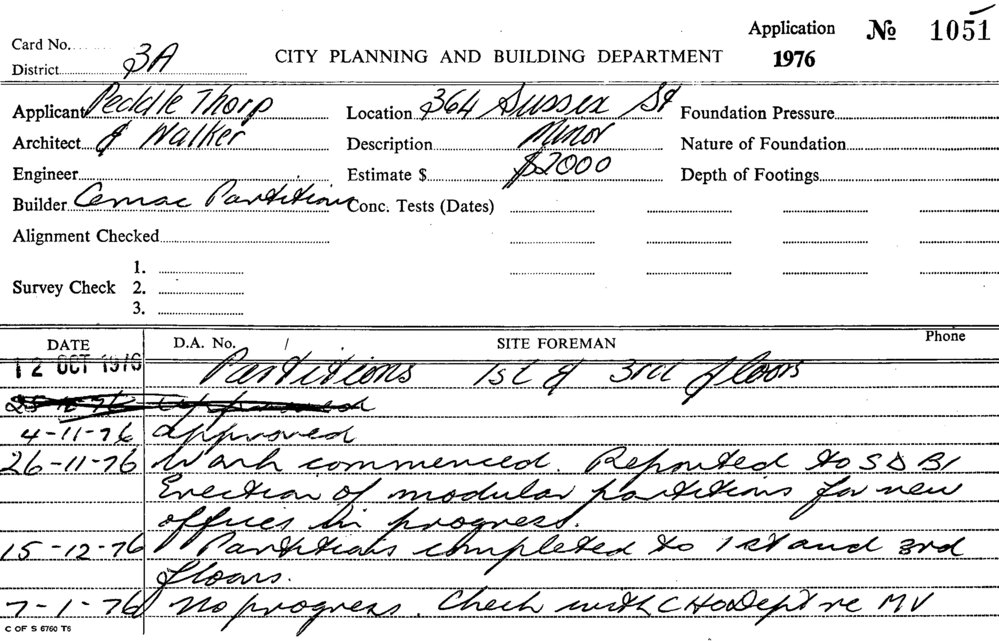 Application No 1051
1976
Card No.
District 3A
CITY PLANNING AND BUILDING DEPARTMENT
Applicant Peddle Thorp
Architect & Walker
Engineer
Builder Cemac Partitions
Alignment Checked
Survey Check 1.
2.
3.
Location 364 Sussex St
Description Minor
Estimate $ $2000
Conc. Tests (Dates)
Foundation Pressure
Nature of Foundation
Depth of Footings
DATE D.A. No. / SITE FOREMAN Phone
12 OCT 1976 Partitions 1st & 3rd floors
25-12-76 approved
4-11-76 approved
26-11-76 Work commenced. Reported to SDBI
Erection of modular partitions for new
offices in progress.
15-12-76 Partitions completed to 1st and 3rd
floors.
7-1-76 No progress. Check with CHO Dept re MV
C OF S 6760 TS